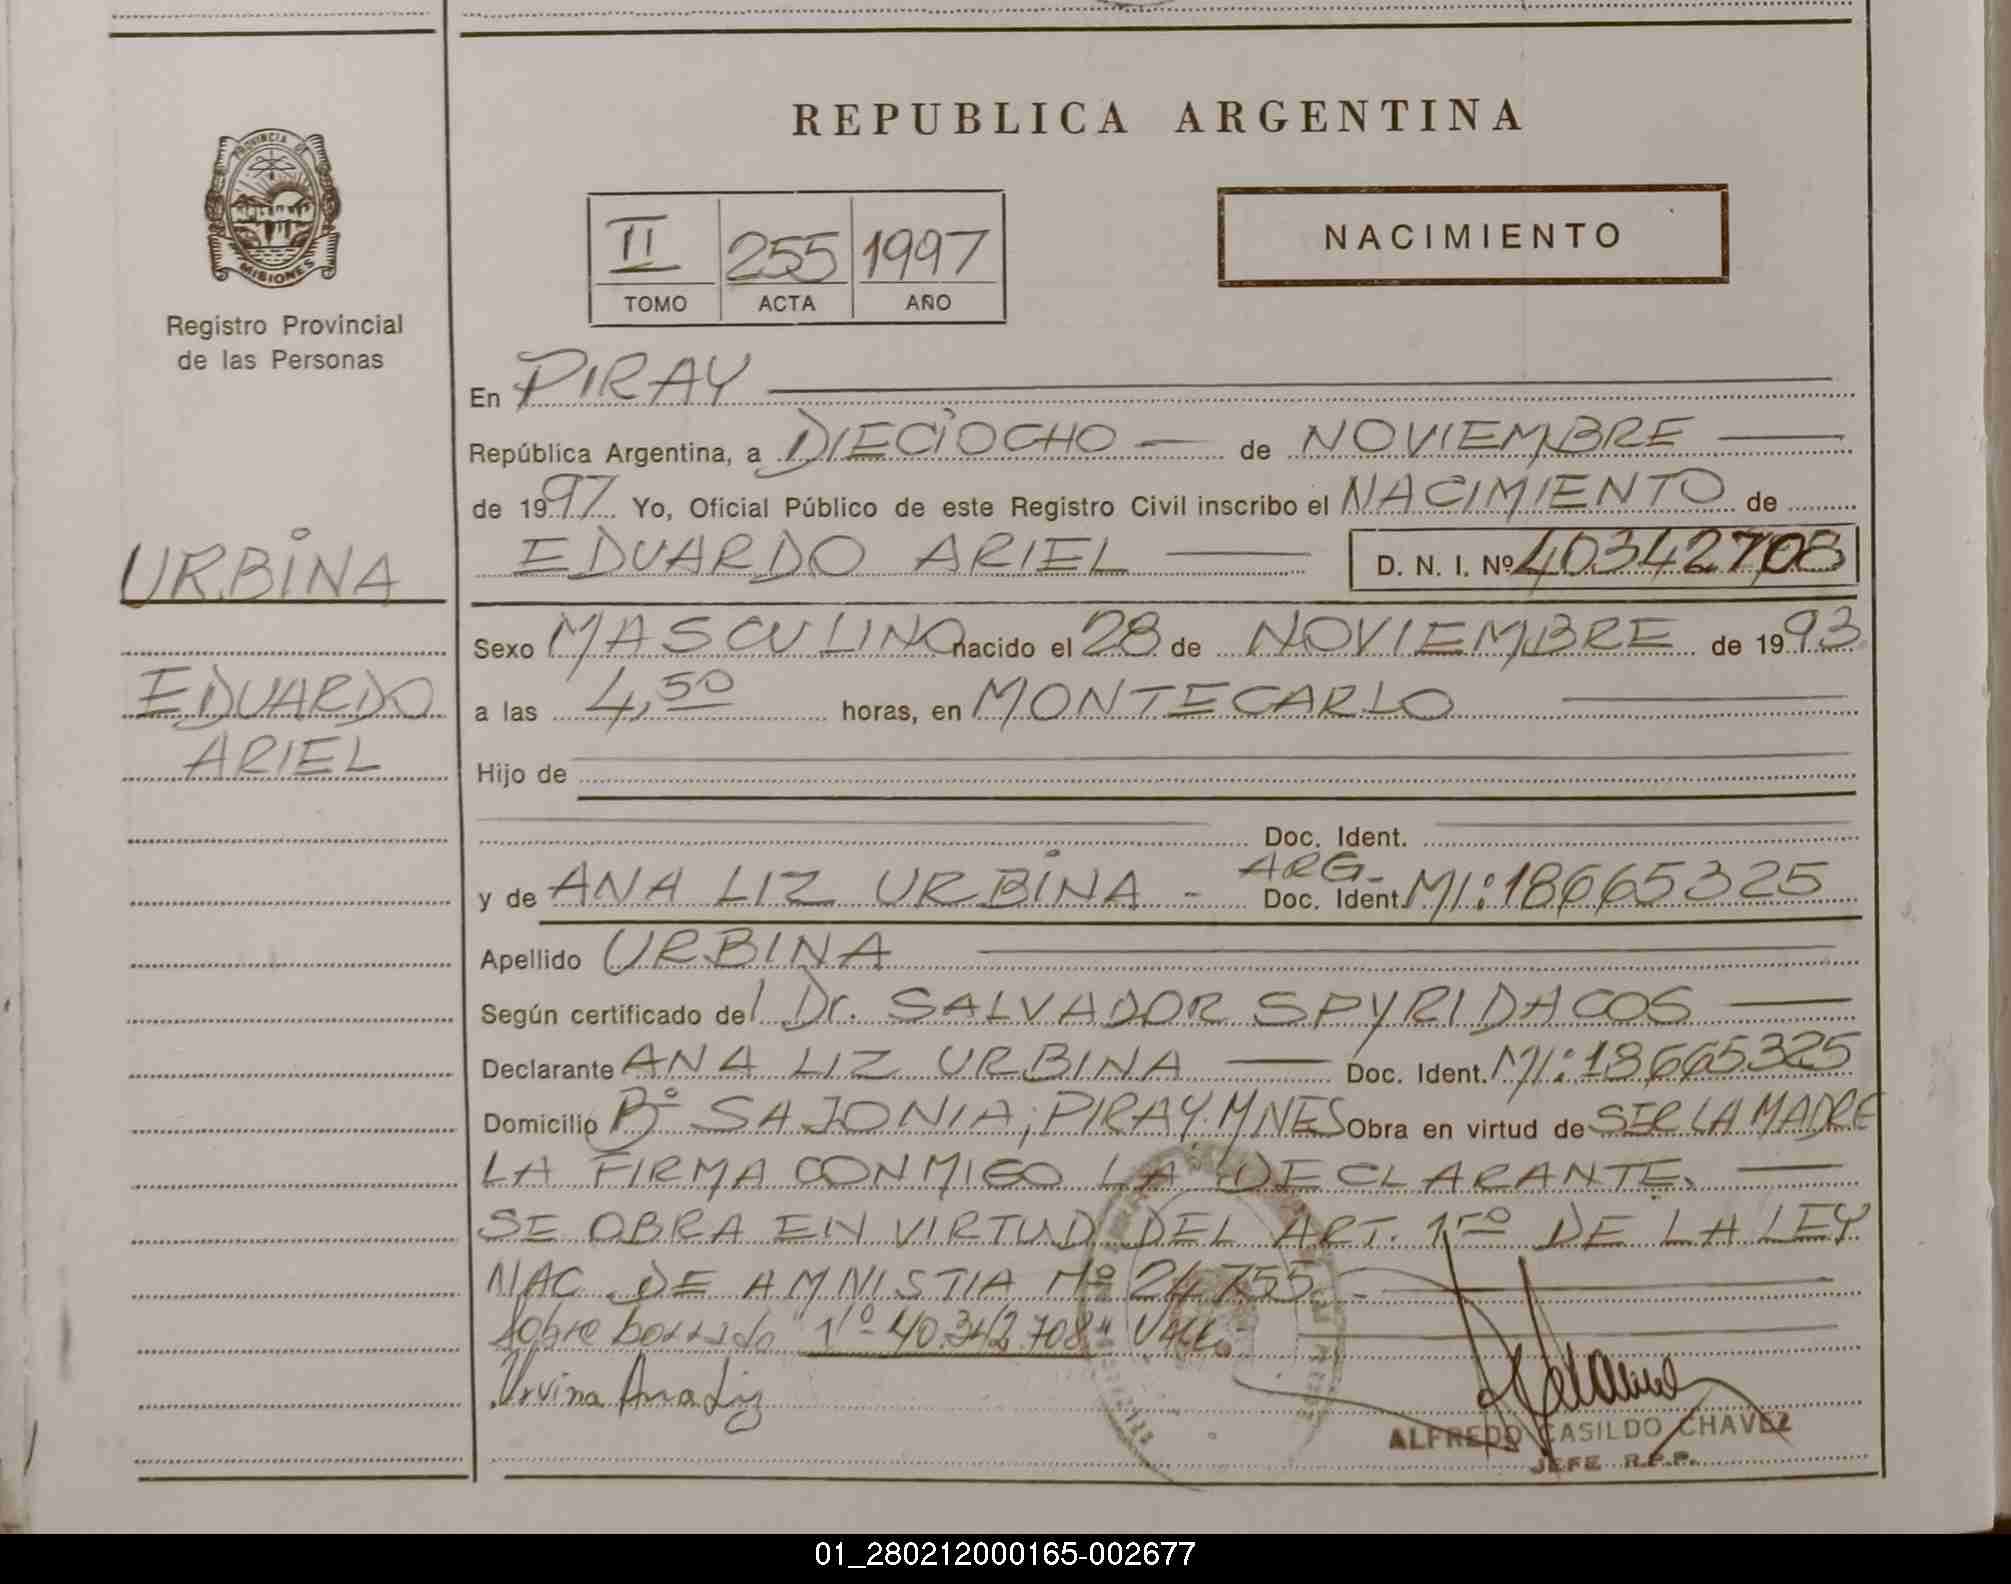 REPUBLICA ARGENTINA
PROVINCIA DE
MISIONES
Registro Provincial
de las Personas
II 255 1997
TOMO ACTA AÑO
NACIMIENTO
En PIRAY
República Argentina, a DIECIOCHO de NOVIEMBRE
de 1997 Yo, Oficial Público de este Registro Civil inscribo el NACIMIENTO de
EDUARDO ARIEL D. N. I. Nº 40342708
URBINA
EDUARDO
ARIEL
Sexo MASCULINO nacido el 28 de NOVIEMBRE de 1993
a las 4,50 horas, en MONTECARLO
Hijo de
Doc. Ident.
y de ANA LIZ URBINA - ARG- Doc. Ident. MI: 18665325
Apellido URBINA
Según certificado del Dr. SALVADOR SPYRIDACOS
Declarante ANA LIZ URBINA Doc. Ident. MI: 18665325
Domicilio Bº SAJONIA, PIRAY. MNES Obra en virtud de SER LA MADRE
LA FIRMA CONMIGO LA DECLARANTE.
SE OBRA EN VIRTUD DEL ART. 1ro DE LA LEY
NAC. DE AMNISTIA Nº 24755.-
Sobre borrado "Nº 40.342.708" Vale.
Urvina Ana Liz
ALFREDO CASILDO CHAVEZ
JEFE R.P.P.
01_280212000165-002677